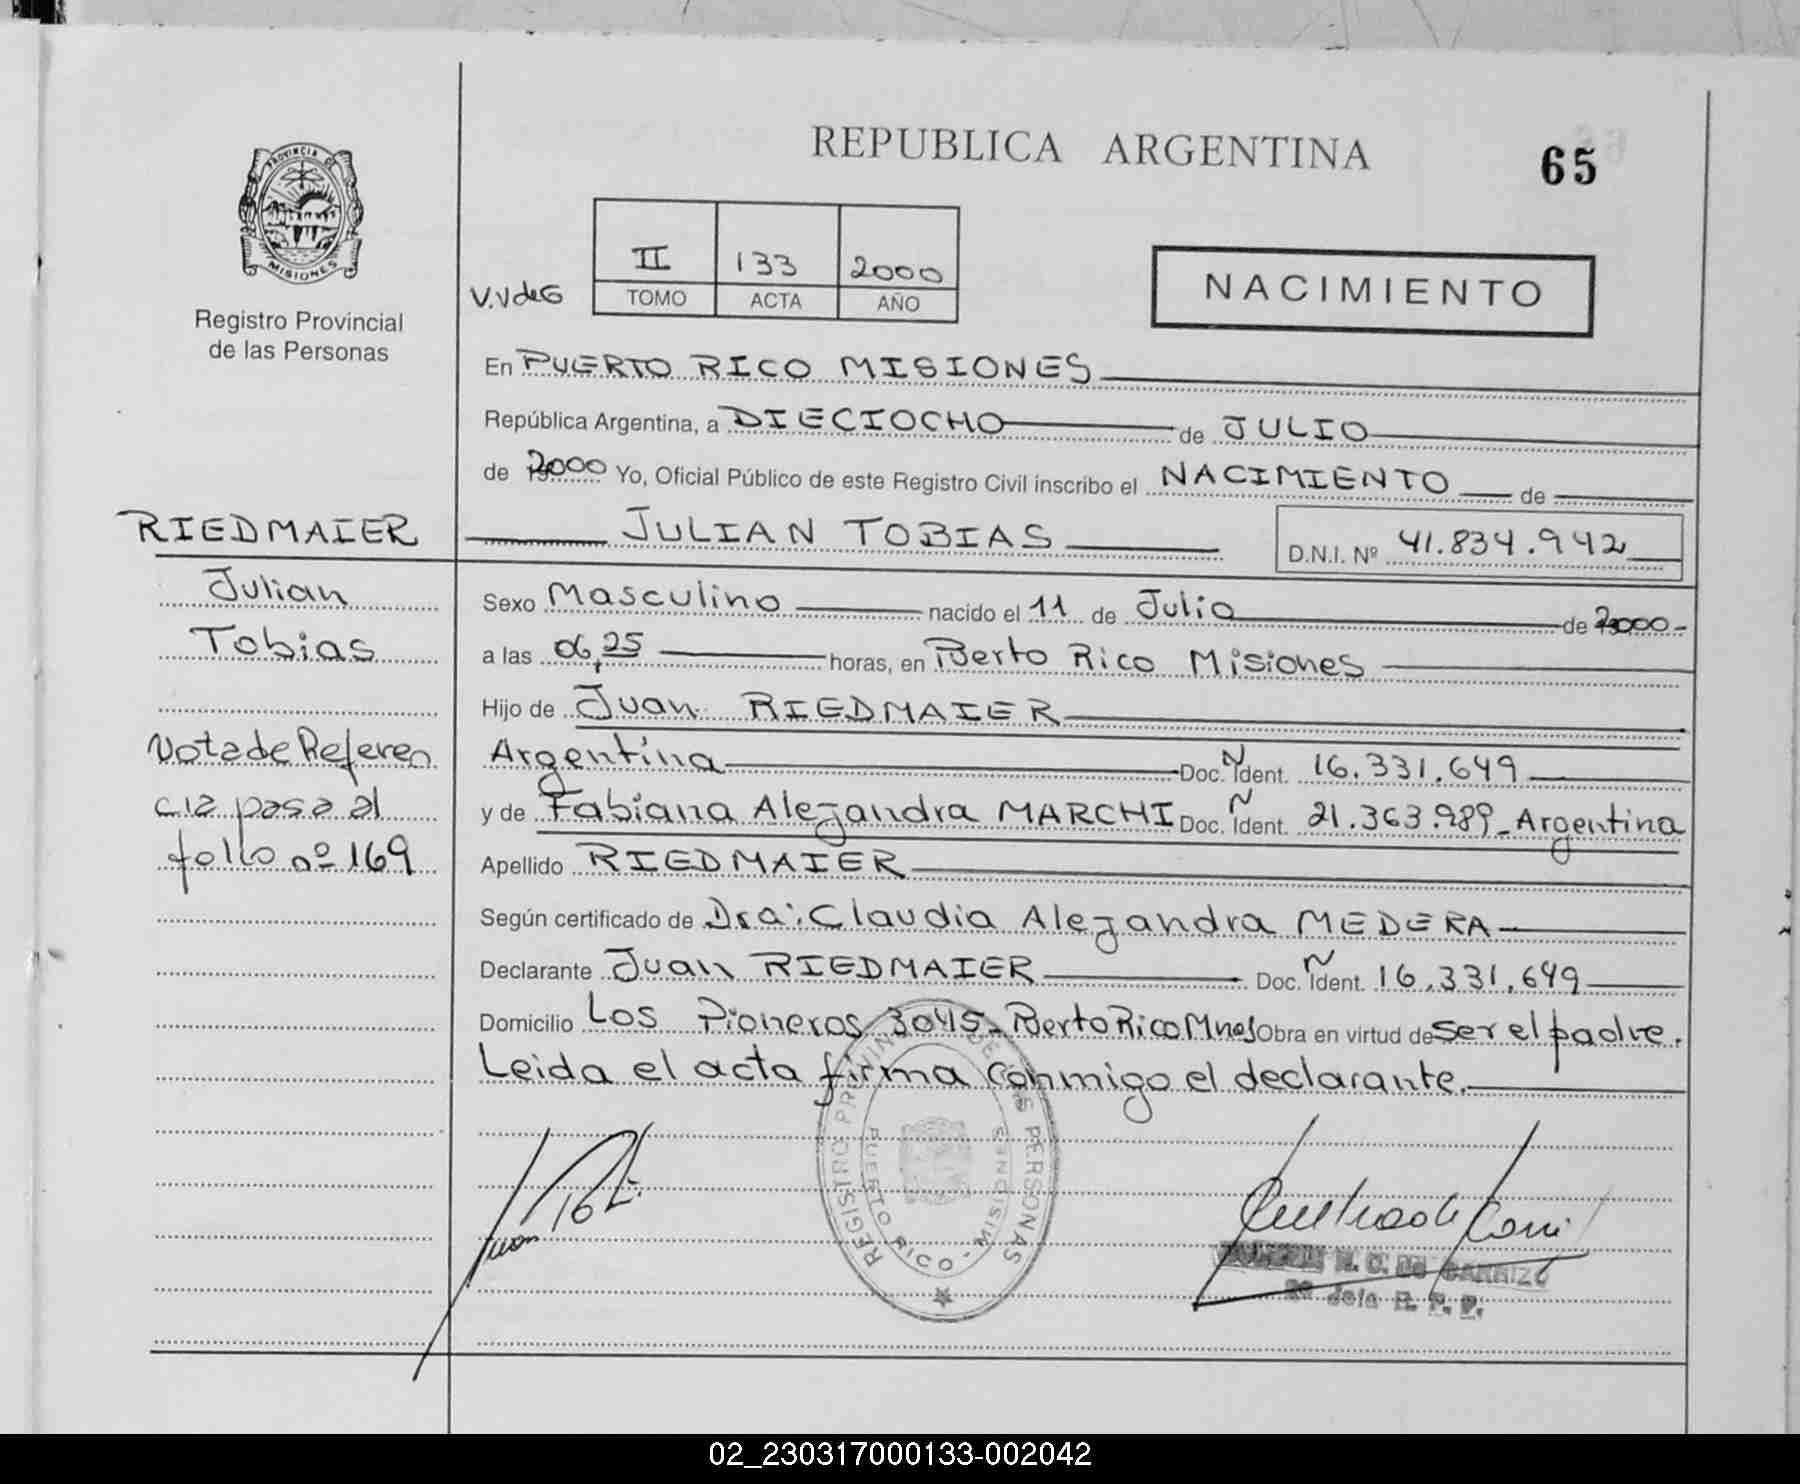 REPUBLICA ARGENTINA
65
PROVINCIA DE
MISIONES
Registro Provincial
de las Personas
V.VdeG
II 133 2000
TOMO ACTA AÑO
NACIMIENTO
En PUERTO RICO MISIONES
República Argentina, a DIECIOCHO de JULIO
de 2000 Yo, Oficial Público de este Registro Civil inscribo el NACIMIENTO de
RIEDMAIER
JULIAN TOBIAS D.N.I. Nº 41.834.942
Julian
Tobias
Nota de Referen
cia pasa al
folio nº 169
Sexo Masculino nacido el 11 de Julio de 2000-
a las 06,25 horas, en Pberto Rico Misiones
Hijo de Juan RIEDMAIER
Argentina Doc. Ñ Ident. 16.331.649
y de Fabiana Alejandra MARCHI Doc. Ñ Ident. 21.363.989_Argentina
Apellido RIEDMAIER
Según certificado de Dra: Claudia Alejandra MEDERA
Declarante Juan RIEDMAIER Doc. Ñ Ident. 16.331.649
Domicilio Los Pioneros 3045- Pberto Rico Mnes Obra en virtud de ser el padre.
Leida el acta firma conmigo el declarante.
REGISTRO PROVINCIAL DE LAS PERSONAS
PUERTO RICO - MISIONES
Juan
N. C. DE CARRIZO
2º Jefa R. P. P.
02_230317000133-002042